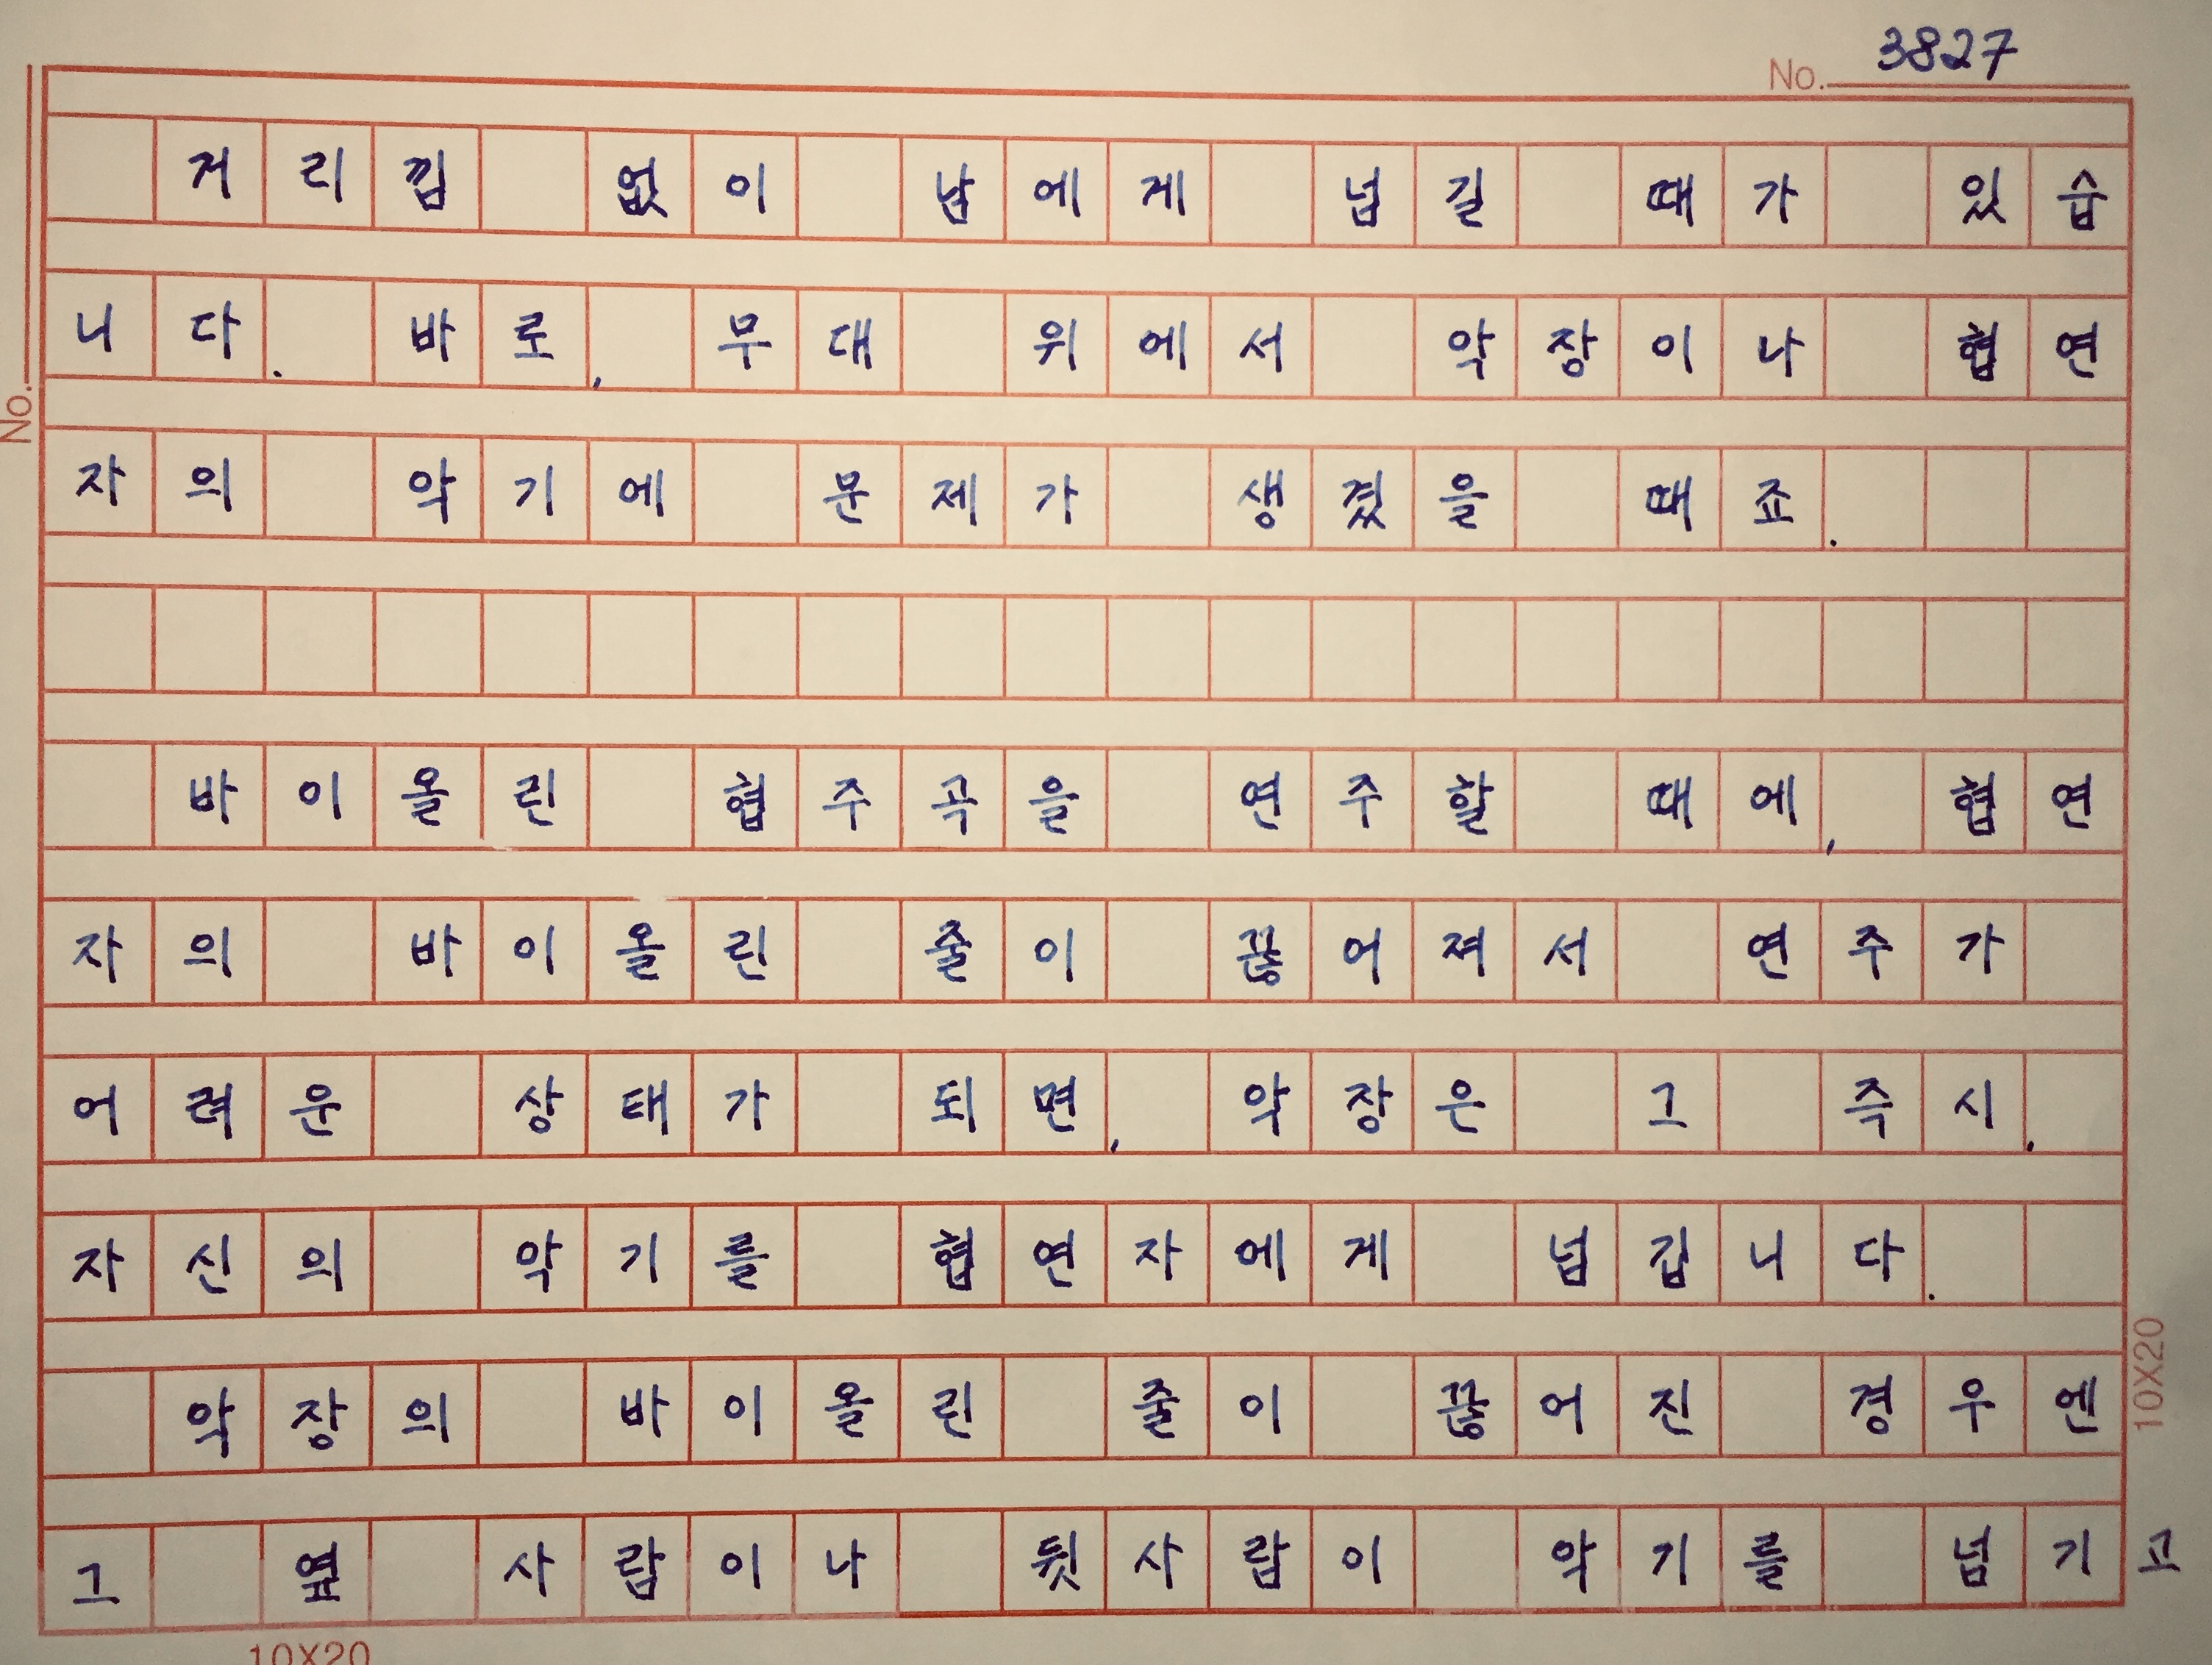 No. 3827
거리낌 없이 남에게 넘길 때가 있습
니다. 바로, 무대 위에서 악장이나 협연
자의 악기에 문제가 생겼을 때죠.
바이올린 협주곡을 연주할 때에, 협연
자의 바이올린 줄이 끊어져서 연주가
어려운 상태가 되면, 악장은 그 즉시,
자신의 악기를 협연자에게 넘깁니다.
악장의 바이올린 줄이 끊어진 경우엔
그 옆 사람이나 뒷사람이 악기를 넘기고
No.
10X20
10X20